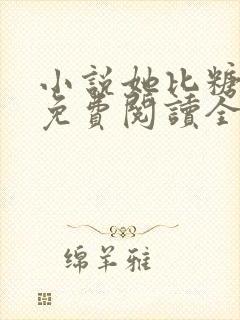 小説她比糖
免費閱讀全
绵羊雅